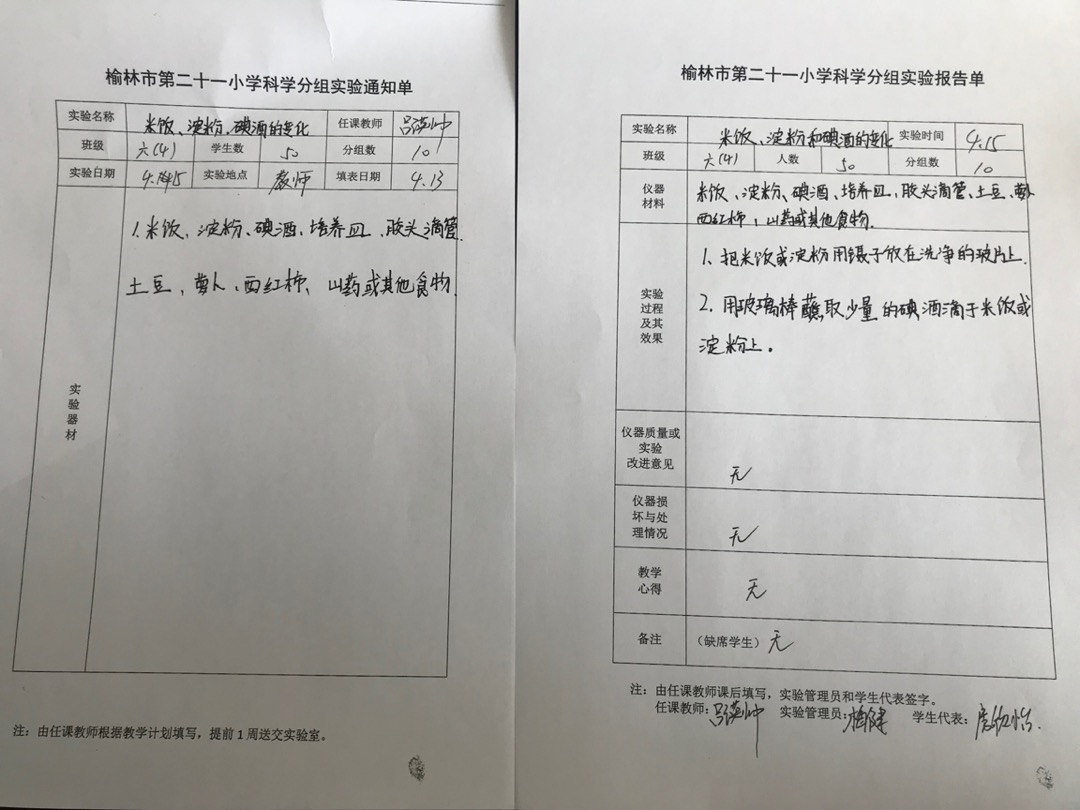 榆林市第二十一小学科学分组实验通知单
实验名称 米饭、淀粉、碘酒的变化 任课教师
班级 六(4) 学生数 50 分组数 10
实验日期 4.15 实验地点 教师 填表日期 4.13
1.米饭、淀粉、碘酒、培养皿、胶头滴管
土豆、萝卜、西红柿、山药或其他食物.
实验器材
注：由任课教师根据教学计划填写，提前1周送交实验室。
榆林市第二十一小学科学分组实验报告单
实验名称 米饭、淀粉和碘酒的变化 实验时间 4.15
班级 六(4) 人数 50 分组数 10
仪器材料 米饭、淀粉、碘酒、培养皿、胶头滴管、土豆、萝卜
西红柿、山药或其他食物.
实验过程及其效果
1、把米饭或淀粉用镊子放在洗净的玻片上.
2.用玻璃棒蘸取少量的碘酒滴于米饭或
淀粉上。
仪器质量或实验改进意见 无
仪器损坏与处理情况 无
教学心得 无
备注 （缺席学生）无
注：由任课教师课后填写，实验管理员和学生代表签字。
任课教师： 实验管理员： 学生代表：